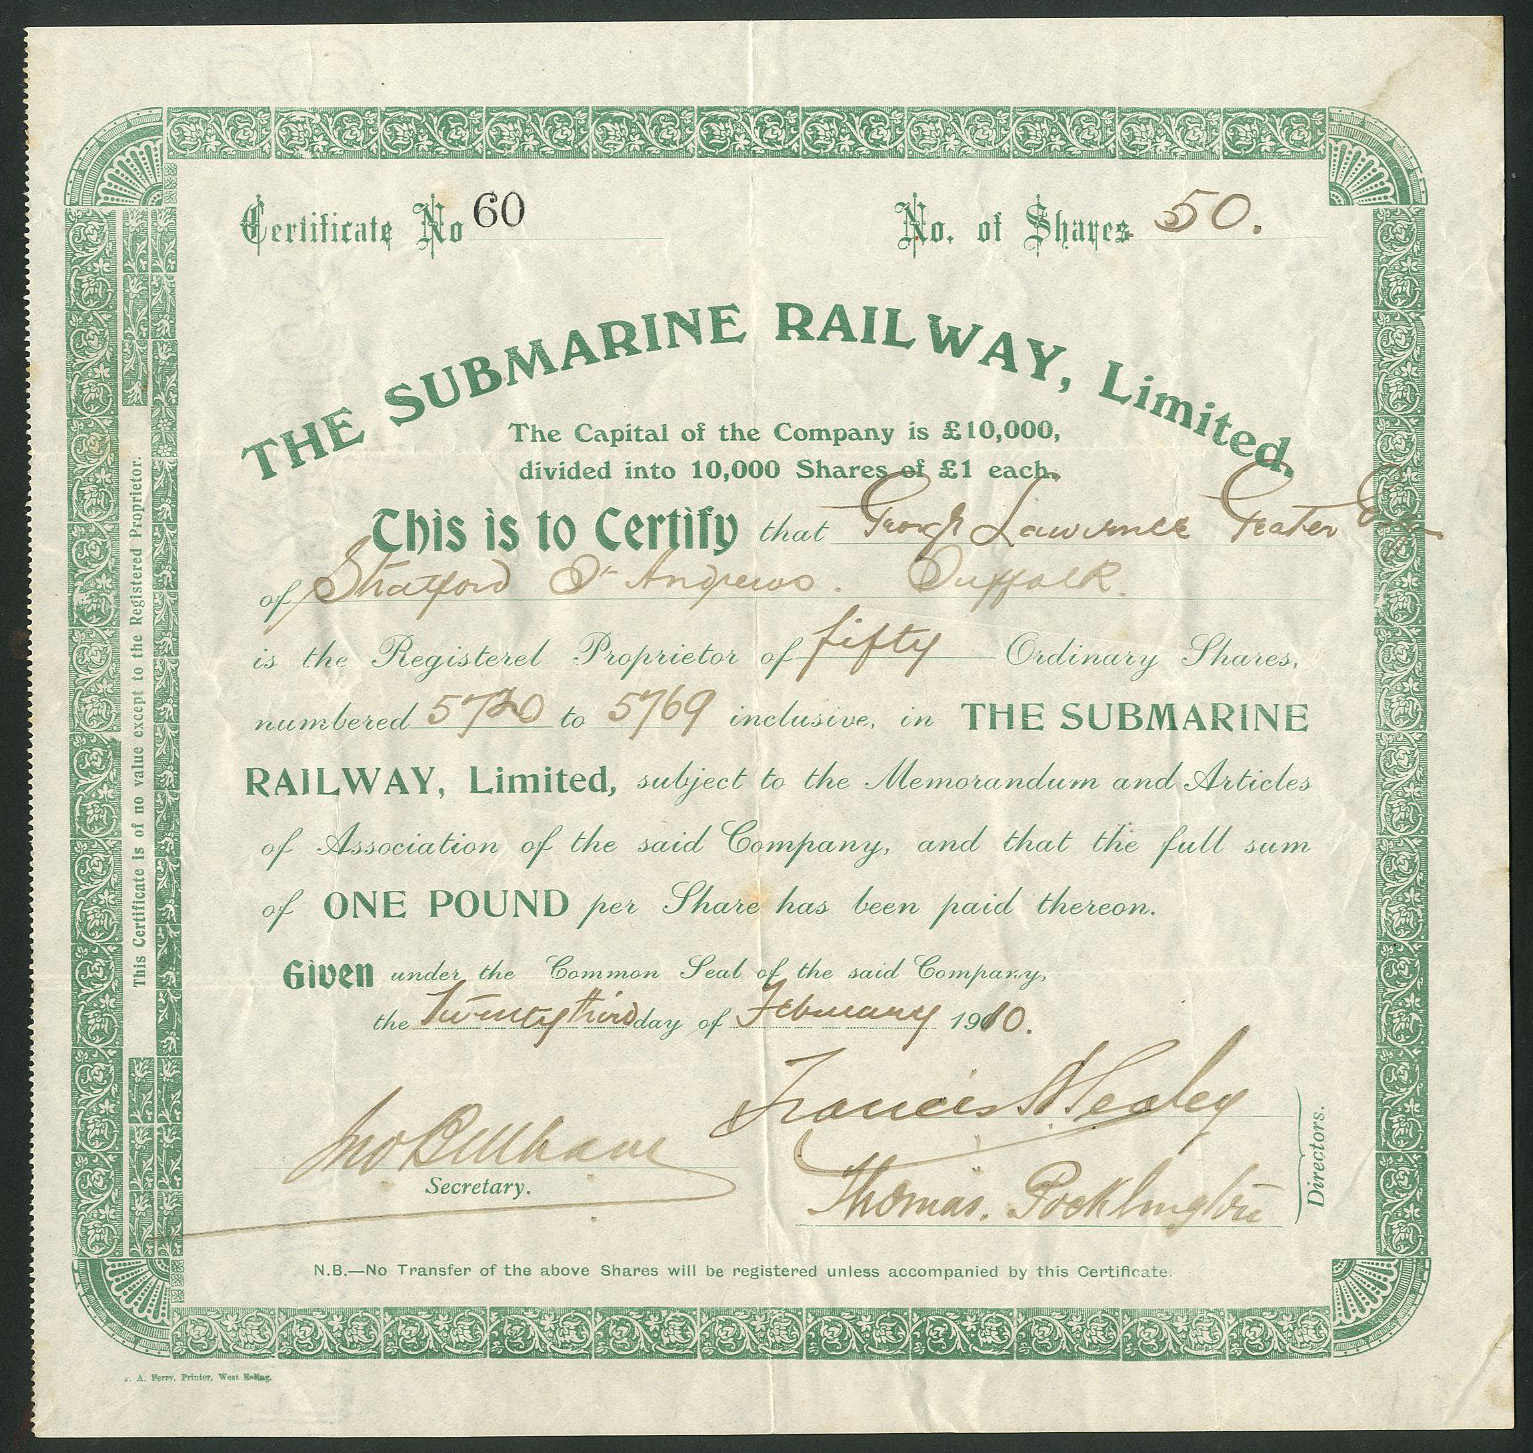 Certificate No 60
No. of Shares 50.
THE SUBMARINE RAILWAY, Limited.
The Capital of the Company is £10,000,
divided into 10,000 Shares of £1 each.
This is to Certify that George Lawrence Esq
of Stratford St Andrews. Suffolk.
is the Registered Proprietor of fifty Ordinary Shares,
numbered 5720 to 5769 inclusive, in THE SUBMARINE
RAILWAY, Limited, subject to the Memorandum and Articles
of Association of the said Company, and that the full sum
of ONE POUND per Share has been paid thereon.
Given under the Common Seal of the said Company,
the Twenty third day of February 1910.
Francis Healey
Thomas. Pocklington
Directors.
Jno
Secretary.
N.B.—No Transfer of the above Shares will be registered unless accompanied by this Certificate.
This Certificate is of no value except to the Registered Proprietor.
A. Perry, Printer, West Ealing.